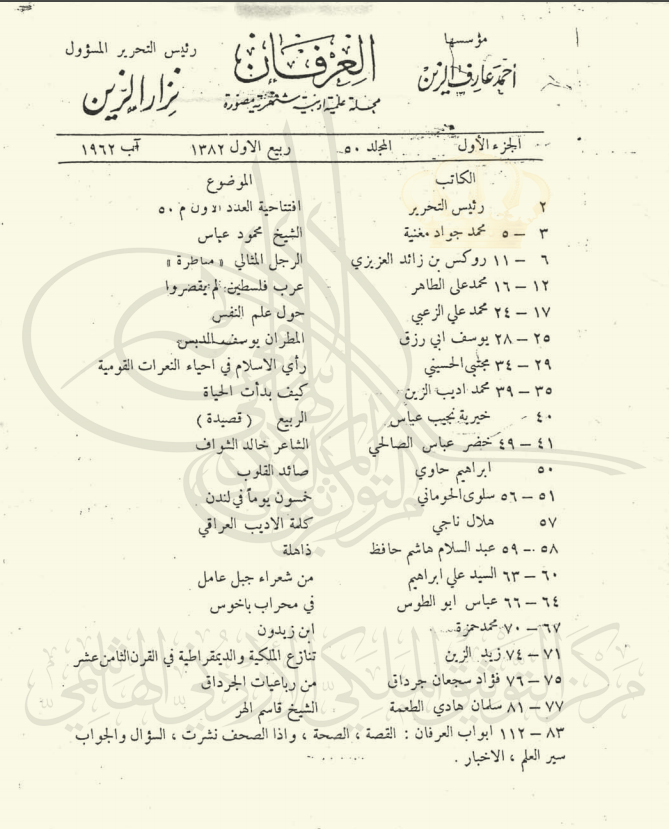 مؤسسها
أحمد عارف الزين
العرفان
مجلة علمية ادبية شهرية مصورة
رئيس التحرير المسؤول
نزار الزين
الجزء الأول المجلد ٥٠ ربيع الاول ١٣٨٢ آب ١٩٦٢
الكاتب الموضوع
٢ رئيس التحرير افتتاحية العدد الاول م ٥٠
٣ – ٥ محمد جواد مغنية الشيخ محمود عباس
٦ – ١١ روكس بن زائد العزيزي الرجل المثالي « مناظرة »
١٢ – ١٦ محمد علي الطاهر عرب فلسطين لم يقصروا
١٧ – ٢٤ محمد علي الزعبي حول علم النفس
٢٥ – ٢٨ يوسف ابي رزق المطران يوسف الدبس
٢٩ – ٣٤ مجتبى الحسيني رأي الاسلام في احياء النعرات القومية
٣٥ – ٣٩ محمد اديب الزين كيف بدأت الحياة
٤٠ خيرية نجيب عباس الربيع ( قصيدة )
٤١ – ٤٩ خضر عباس الصالحي الشاعر خالد الشواف
٥٠ ابراهيم حاوي صائد القلوب
٥١ – ٥٦ سلوى الحوماني خمسون يوماً في لندن
٥٧ هلال ناجي كلمة الاديب العراقي
٥٨ – ٥٩ عبد السلام هاشم حافظ ذاهلة
٦٠ – ٦٣ السيد علي ابراهيم من شعراء جبل عامل
٦٤ – ٦٦ عباس ابو الطوس في محراب باخوس
٦٧ – ٧٠ محمد حمزة ابن زيدون
٧١ – ٧٤ زيد الزين تنازع الملكية والديمقراطية في القرن الثامن عشر
٧٥ – ٧٦ فؤاد سجعان جرداق من رباعيات الجرداق
٧٧ – ٨١ سلمان هادي الطعمة الشيخ قاسم الهر
٨٣ – ١١٢ ابواب العرفان : القصة ، الصحة ، واذا الصحف نشرت ، السؤال والجواب
سير العلم ، الاخبار .
مركز التوثيق الملكي الأردني الهاشمي